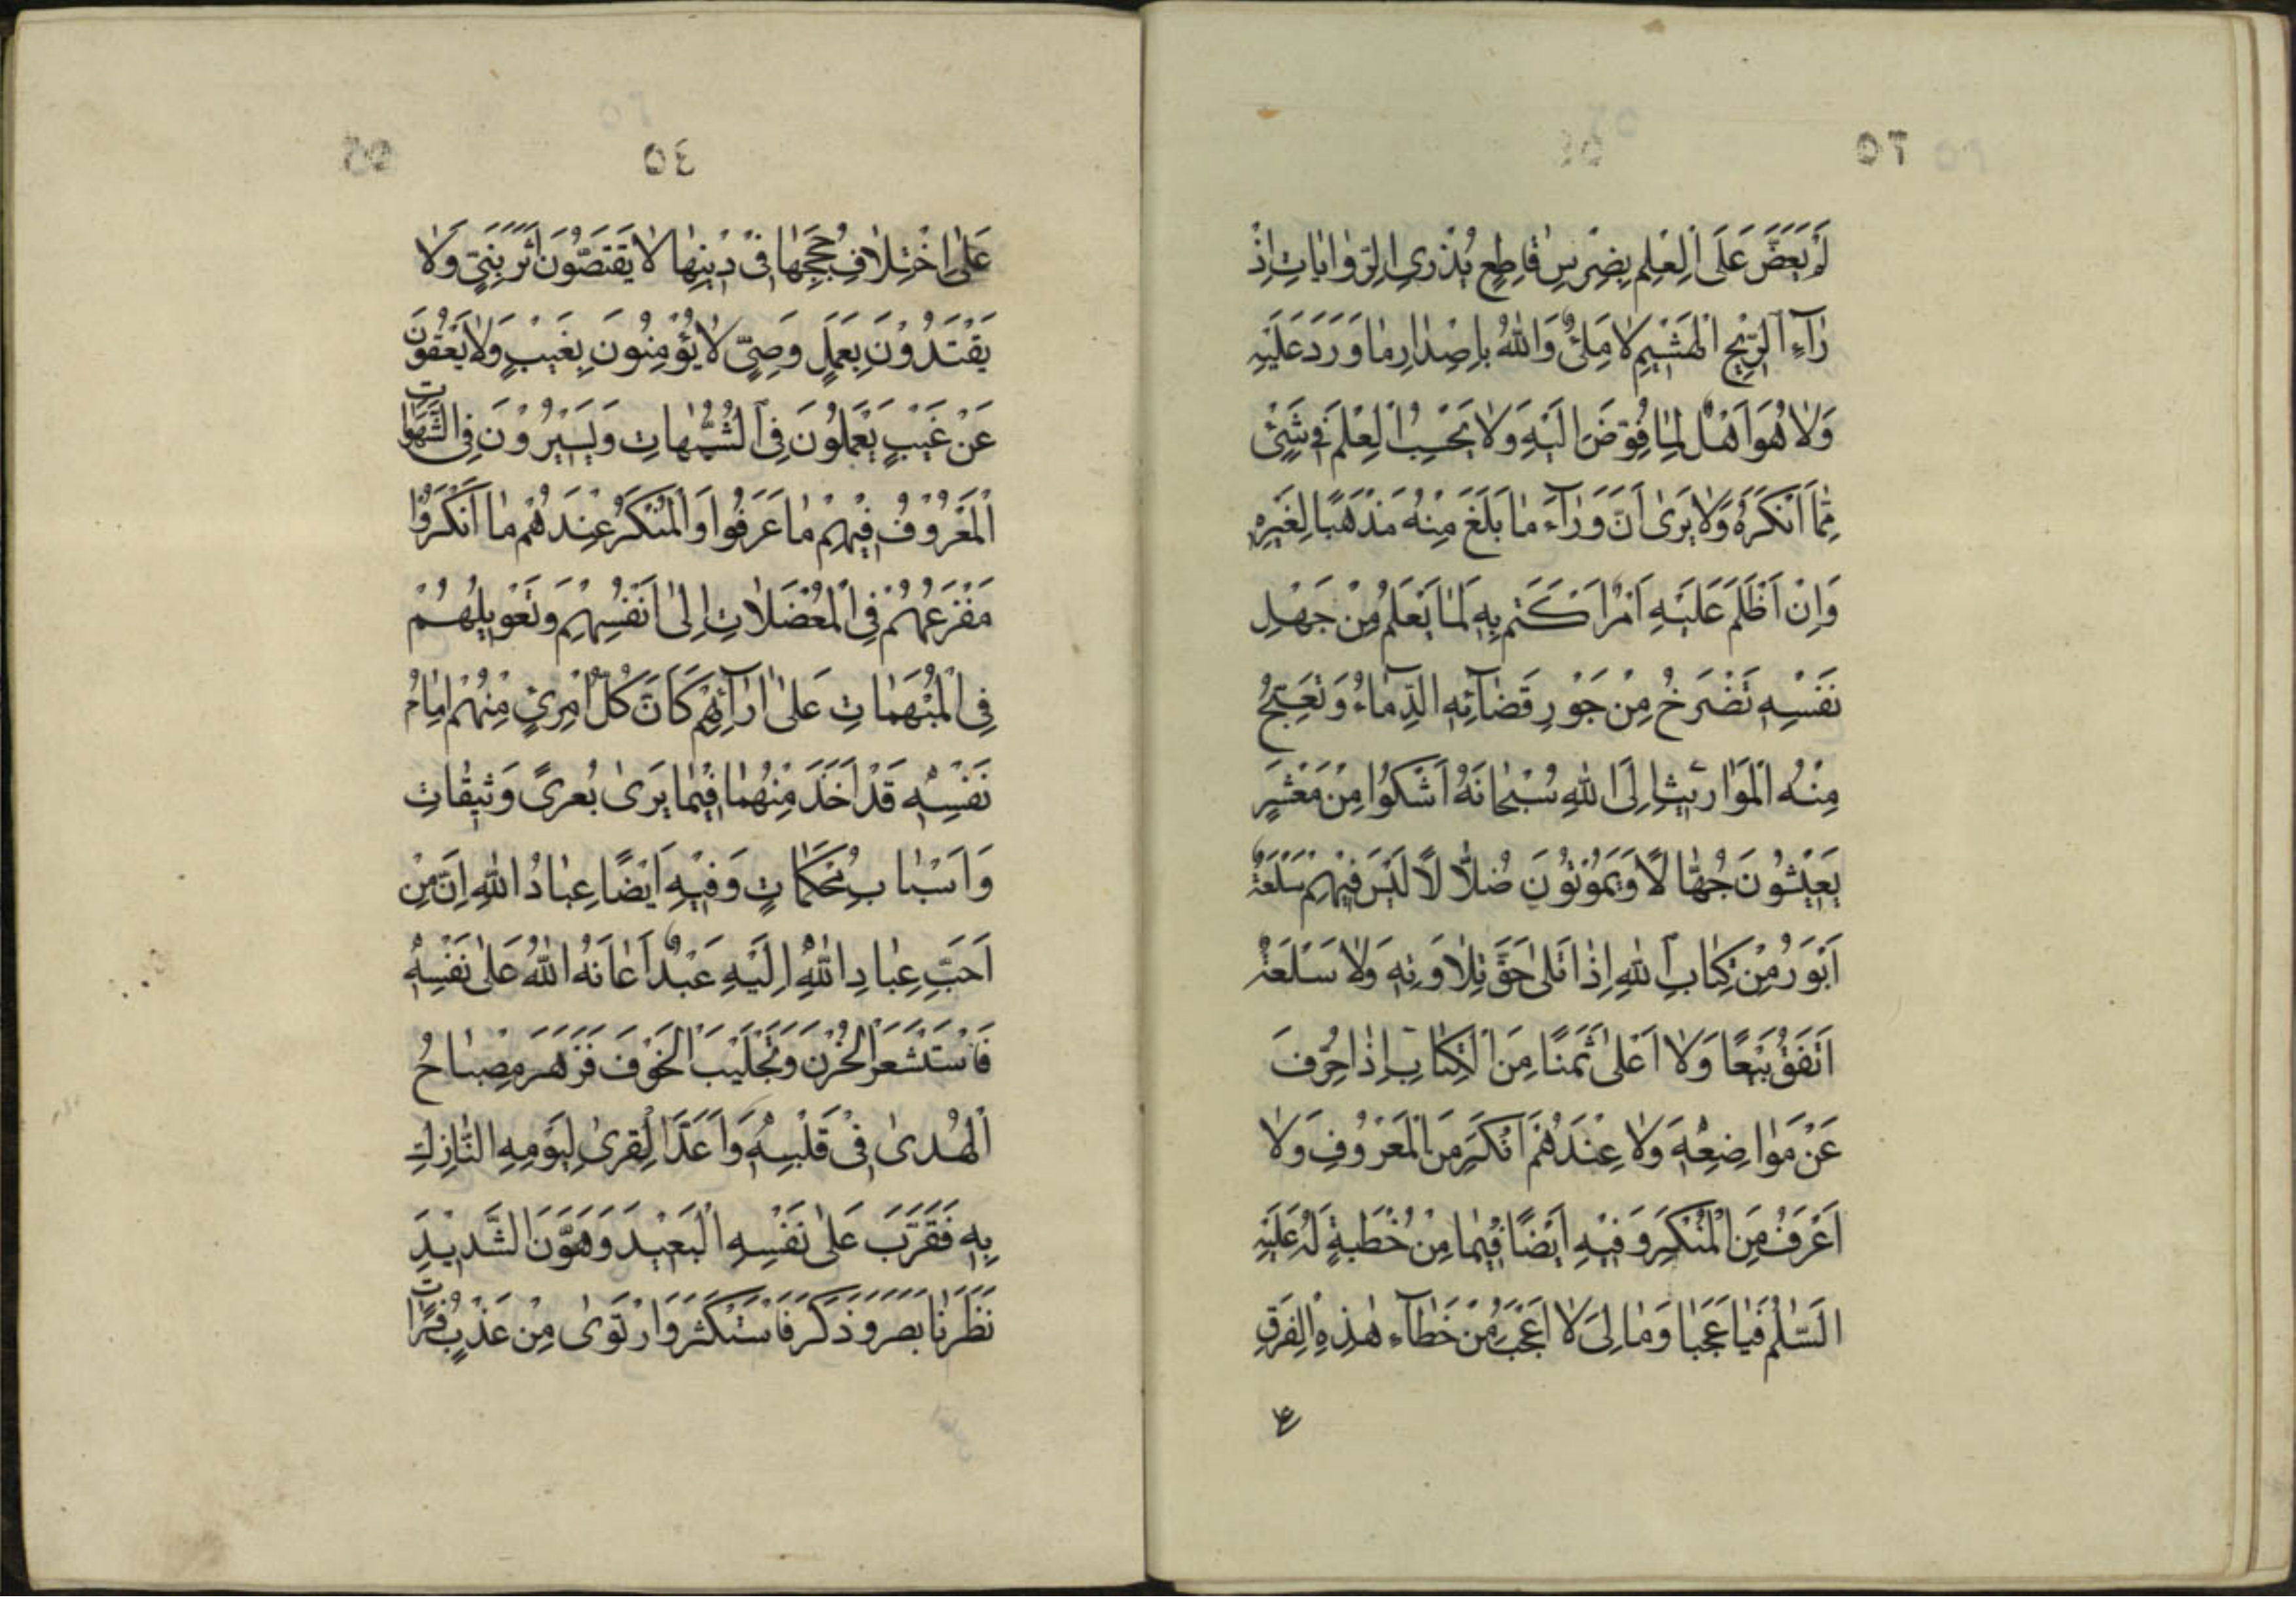 ٥٣
لَمْ يَعَضَّ عَلَى الْعِلْمِ بِضِرْسٍ قَاطِعٍ يُذْرِي الرِّوَايَاتِ اِذْ
رَآءِ الرِّيْحِ الْهَشِيْمِ لَا مَلِئٌ وَاللهُ بِاِصْدَارِ مَا وَرَدَ عَلَيْهِ
وَلَا هُوَ اَهْلٌ لِمَا فُوِّضَ اِلَيْهِ وَلَا يَحْسِبُ الْعِلْمَ فِي شَيْئٍ
مِمَّا اَنْكَرَهُ وَلَا يَرَى اَنَّ وَرَآءَ مَا بَلَغَ مِنْهُ مَذْهَبًا لِغَيْرِهِ
وَاِنْ اَظْلَمَ عَلَيْهِ اَمْرٌ اكْتَتَمَ بِهِ لِمَا يَعْلَمُ مِنْ جَهْلِ
نَفْسِهِ تَصْرَخُ مِنْ جَوْرِ قَضَآئِهِ الدِّمَاءُ وَتَعِجُّ
مِنْهُ الْمَوَارِيْثُ اِلَى اللهِ سُبْحَانَهُ اَشْكُوا مِنْ مَعْشَرٍ
يَعِيْشُونَ جُهَّالًا وَيَمُوْتُوْنَ ضُلَّالًا لَيْسَ فِيْهِمْ سَلْعَةٌ
اَبْوَرُ مِنْ كِتَابِ اللهِ اِذَا تُلِىَ حَقَّ تِلَاوَتِهِ وَلَا سَلْعَةٌ
اَنْفَقُ بَيْعًا وَلَا اَغْلَى ثَمَنًا مِنَ الْكِتَابِ اِذَا حُرِّفَ
عَنْ مَوَاضِعِهِ وَلَا عِنْدَهُمْ اَنْكَرُ مِنَ الْمَعْرُوفِ وَلَا
اَعْرَفُ مِنَ الْمُنْكَرِ وَفِيْهِ اَيْضًا فِيْمَا مِنْ خُطْبَةٍ لَهُ عَلَيْهِ
السَّلٰمُ فَيَا عَجَبًا وَمَا لِىَ لَا اَعْجَبُ مِنْ خَطَآءِ هٰذِهِ الْفِرَقِ
٥٤
عَلَى اخْتِلَافِ حُجَجِهَا فِى دِيْنِهَا لَا يَقْتَصُّوْنَ اَثَرَ نَبِىٍّ وَلَا
يَقْتَدُوْنَ بِعَمَلِ وَصِىٍّ لَا يُؤْمِنُوْنَ بِغَيْبٍ وَلَا يَعْفُوْنَ
عَنْ عَيْبٍ يَعْمَلُوْنَ فِى الشُّبُهَاتِ وَيَسِيْرُوْنَ فِى الشَّهَوَاتِ
الْمَعْرُوْفُ فِيْهِمْ مَا عَرَفُوا وَالْمُنْكَرُ عِنْدَهُمْ مَا اَنْكَرُوْا
مَفْزَعُهُمْ فِى الْمُعْضَلَاتِ اِلَى اَنْفُسِهِمْ وَتَعْوِيْلُهُمْ
فِى الْمُبْهَمَاتِ عَلَى اٰرَآئِهِمْ كَاَنَّ كُلَّ امْرِئٍ مِنْهُمْ اِمَامُ
نَفْسِهِ قَدْ اَخَذَ مِنْهُمَا فِيْمَا يَرَى بُعرىً وَثِيْقَاتٍ
وَاَسْبَابٍ مُحْكَمَاتٍ وَفِيْهِ اَيْضًا عِبَادُ اللهِ اِنَّ مِنْ
اَحَبِّ عِبَادِ اللهِ اِلَيْهِ عَبْدٌ اَعَانَهُ اللهُ عَلَى نَفْسِهِ
فَاسْتَشْعَرَ الْحُزْنَ وَتَجَلْبَبَ الْخَوْفَ فَزَهَرَ مِصْبَاحُ
الْهُدَى فِى قَلْبِهِ وَاَعَدَّ الْقِرَى لِيَوْمِهِ النَّازِلِ
بِهِ فَقَرَّبَ عَلَى نَفْسِهِ الْبَعِيْدَ وَهَوَّنَ الشَّدِيْدَ
نَظَرَ نَا بَصَرَ وَذَكَرَ فَاسْتَكْثَرَ وَارْتَوَى مِنْ عَذْبٍ فُرَاتٍ